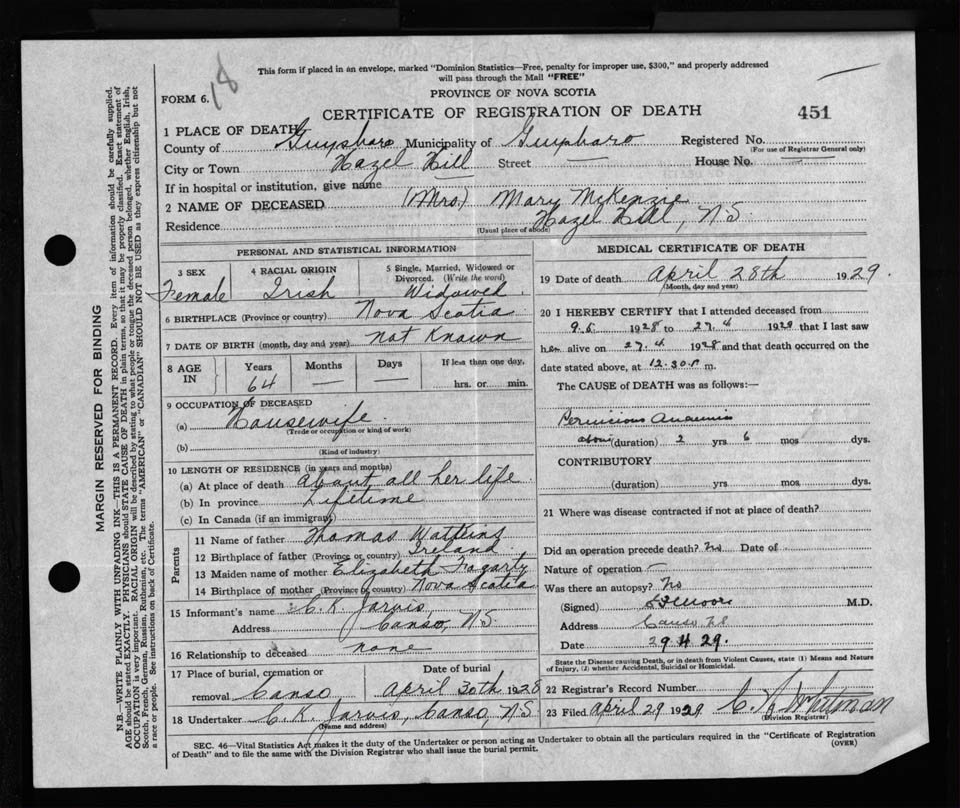 18
This form if placed in an envelope, marked "Dominion Statistics—Free, penalty for improper use, $300," and properly addressed
will pass through the Mail "FREE"
PROVINCE OF NOVA SCOTIA
FORM 6.
CERTIFICATE OF REGISTRATION OF DEATH
451
1 PLACE OF DEATH
County of Guysboro Municipality of Guysboro Registered No.
(For use of Registrar General only)
City or Town Hazel Hill Street — House No. —
If in hospital or institution, give name
2 NAME OF DECEASED (Mrs.) Mary McKenzie
Residence Hazel Hill, N.S.
(Usual place of abode)
PERSONAL AND STATISTICAL INFORMATION
3 SEX 4 RACIAL ORIGIN 5 Single, Married, Widowed or
Divorced. (Write the word)
Female Irish Widowed
6 BIRTHPLACE (Province or country) Nova Scotia
7 DATE OF BIRTH (month, day and year) not Known
8 AGE IN Years Months Days If less than one day,
64 — — hrs. or min.
9 OCCUPATION OF DECEASED
(a) Housewife
(Trade or occupation or kind of work)
(b)
(Kind of industry)
10 LENGTH OF RESIDENCE (in years and months)
(a) At place of death about all her life
(b) In province Lifetime
(c) In Canada (if an immigrant)
Parents
11 Name of father Thomas Watkins
12 Birthplace of father (Province or country) Ireland
13 Maiden name of mother Elizabeth Fogarty
14 Birthplace of mother (Province or country) Nova Scotia
15 Informant's name C. K. Jarvis,
Address Canso, N.S.
16 Relationship to deceased none
17 Place of burial, cremation or Date of burial
removal Canso, April 30th 1928
18 Undertaker C. K. Jarvis, Canso, N.S.
(Name and address)
MEDICAL CERTIFICATE OF DEATH
19 Date of death April 28th 1929.
(Month, day and year)
20 I HEREBY CERTIFY that I attended deceased from
9.5 1928 to 27.4 1929 that I last saw
her alive on 27.4 1928 and that death occurred on the
date stated above, at 12.30 m.
The CAUSE of DEATH was as follows:—
Pernicious Anaemia
about (duration) 2 yrs 6 mos dys.
CONTRIBUTORY
(duration) yrs. mos. dys.
21 Where was disease contracted if not at place of death?
Did an operation precede death? No Date of
Nature of operation —
Was there an autopsy? No
(Signed) Moore M.D.
Address Canso N.S
Date 29.4.29.
State the Disease causing Death, or in death from Violent Causes, state (1) Means and Nature
of Injury, (2) whether Accidental, Suicidal or Homicidal.
22 Registrar's Record Number
23 Filed April 29 1929 C. Whitman
(Division Registrar)
SEC. 46—Vital Statistics Act makes it the duty of the Undertaker or person acting as Undertaker to obtain all the particulars required in the "Certificate of Registration
of Death" and to file the same with the Division Registrar who shall issue the burial permit.
(OVER)
MARGIN RESERVED FOR BINDING
N.B.—WRITE PLAINLY WITH UNFADING INK—THIS IS A PERMANENT RECORD. Every item of information should be carefully supplied.
AGE should be stated EXACTLY. PHYSICIANS should STATE CAUSE OF DEATH in plain terms, so that it may be properly classified. Exact statement of
OCCUPATION is very important. RACIAL ORIGIN will be described by stating to what people or tongue the deceased person belonged, whether English, Irish,
Scotch, French, German, Russian, Ruthenian, etc. The terms "AMERICAN" or "CANADIAN" SHOULD NOT BE USED as they express citizenship but not
a race or people. See instructions on back of Certificate.